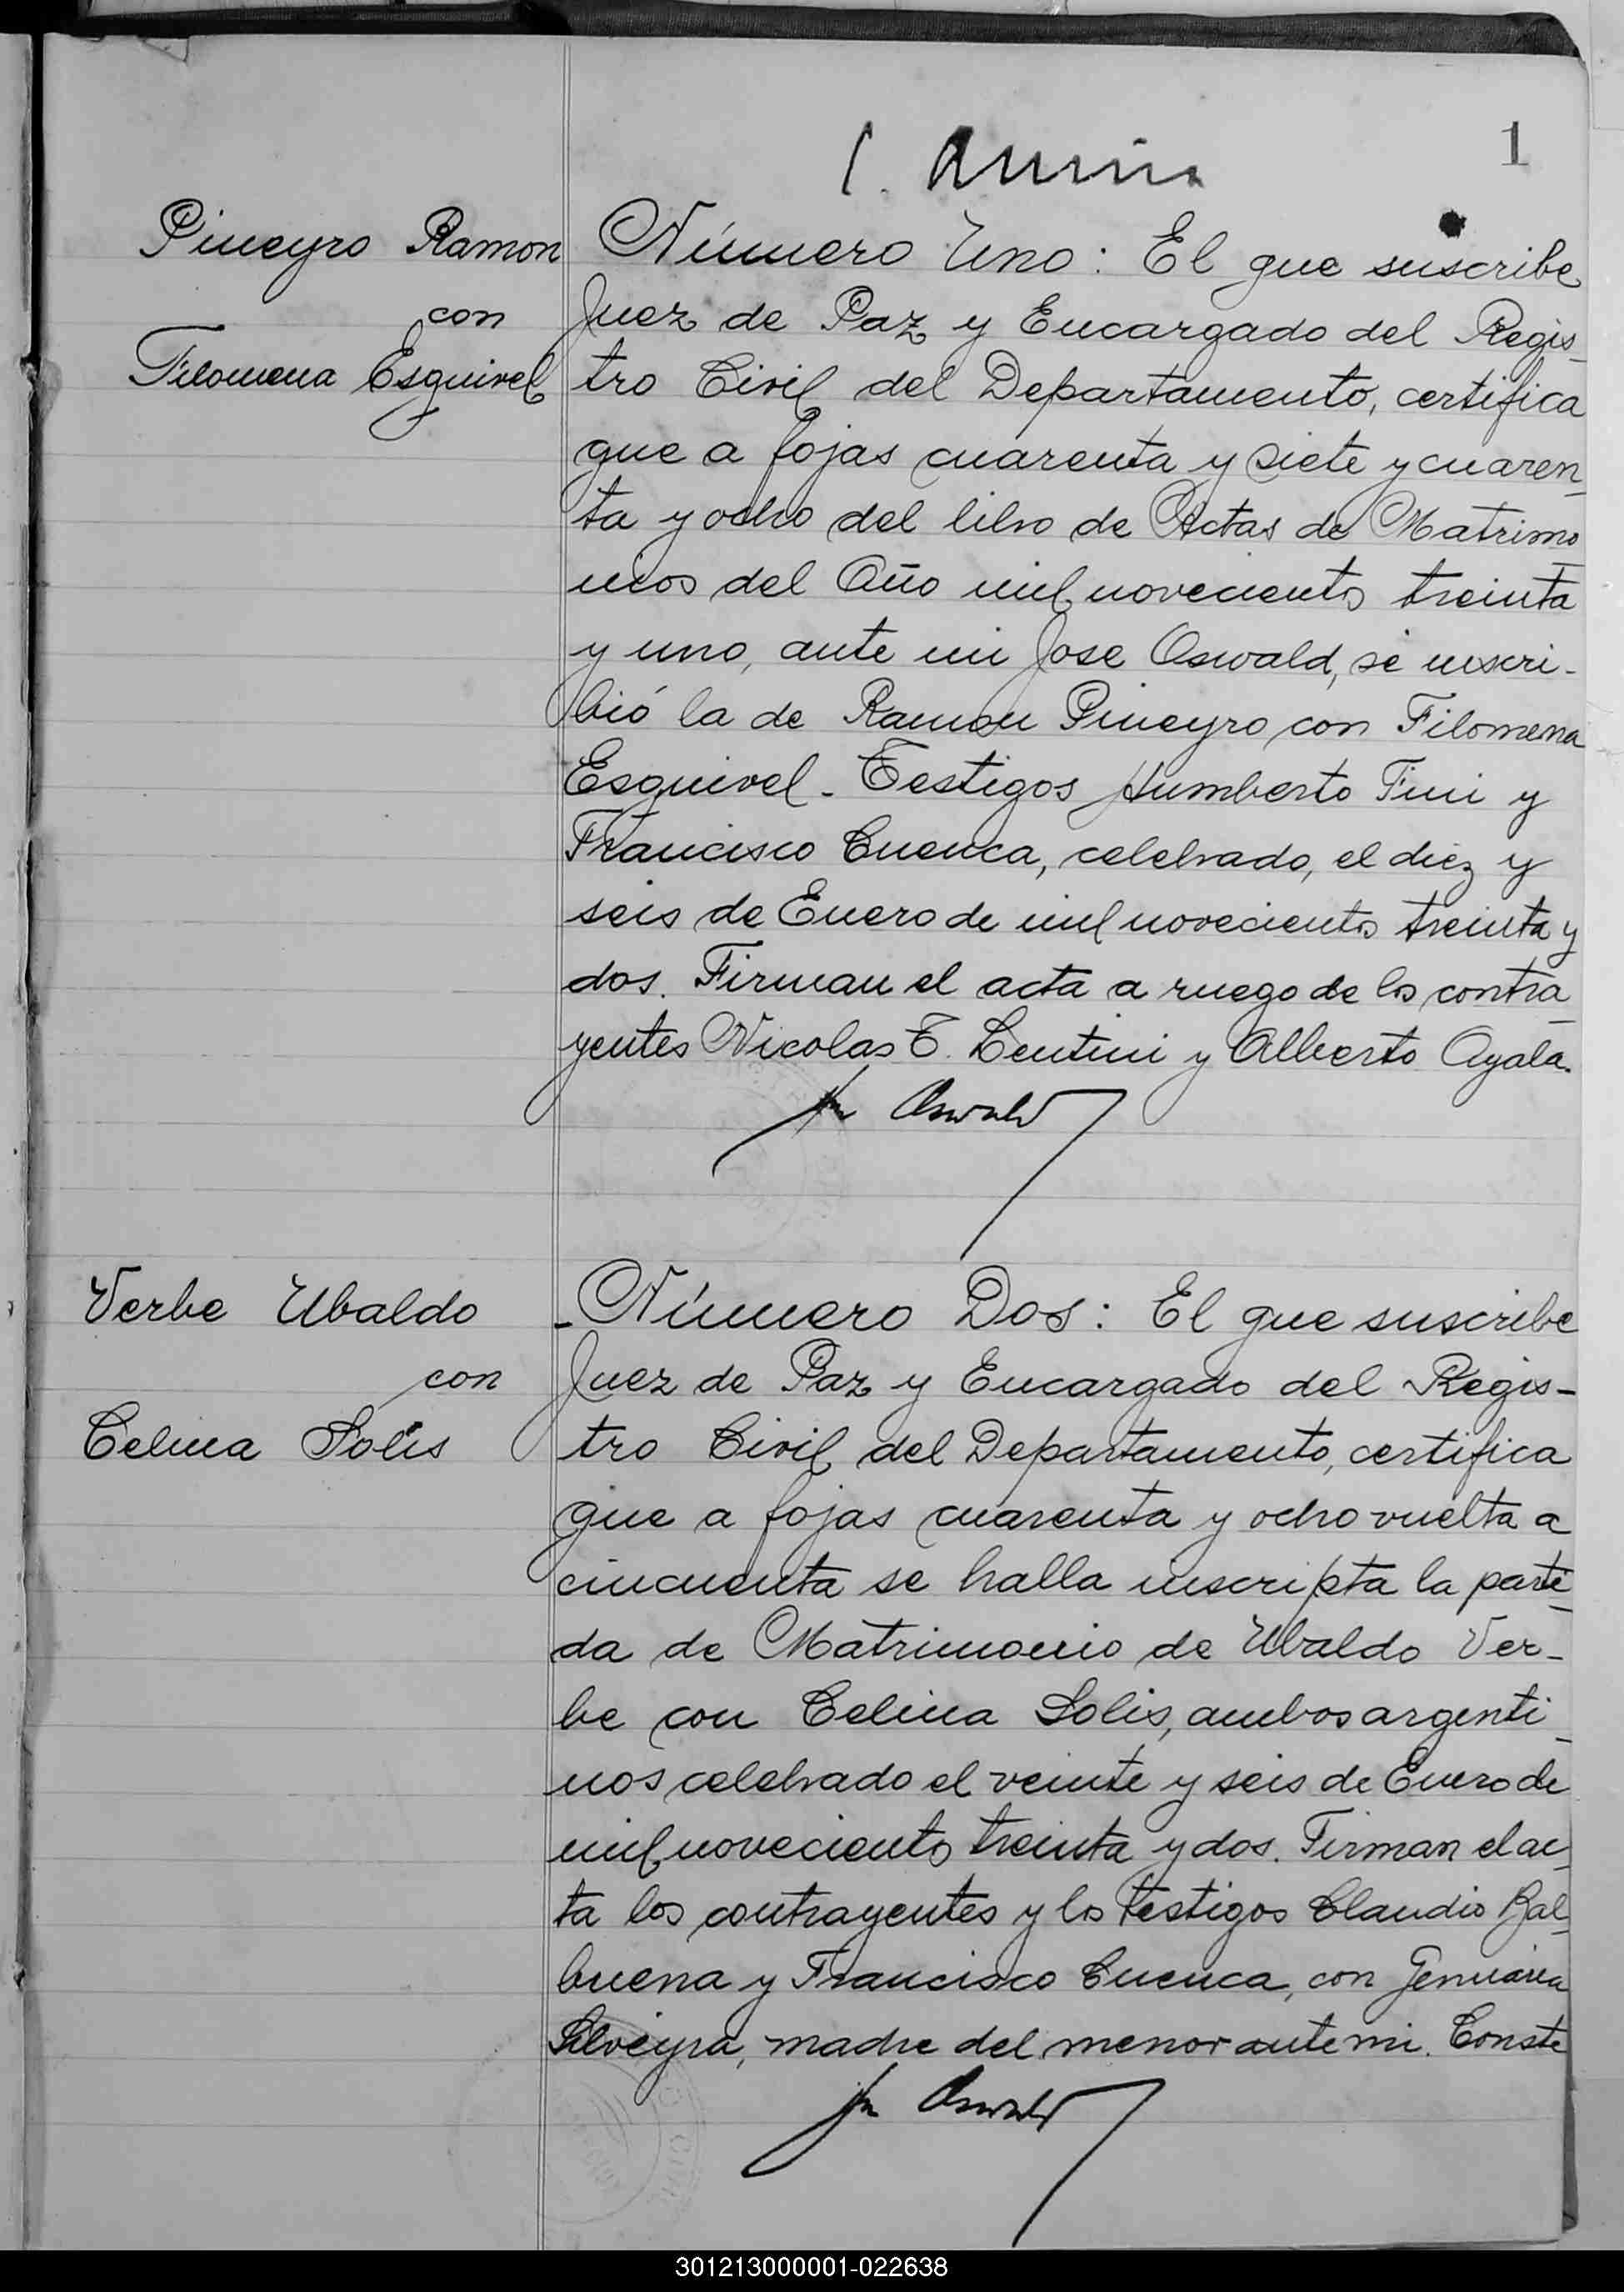 1
Pineyro Ramon
con
Filomena Esquivel
Número Uno: El que suscribe
Juez de Paz y Encargado del Regis-
tro Civil del Departamento, certifica
que a fojas cuarenta y siete y cuaren-
ta y ocho del libro de Actas de Matrimo-
nios del Año mil novecientos treinta
y uno, ante mi Jose Oswald, se inscri-
bió la de Ramon Pineyro con Filomena
Esquivel - Testigos Humberto Fini y
Francisco Cuenca, celebrado, el diez y
seis de Enero de mil novecientos treinta y
dos. Firman el acta a ruego de los contra-
yentes Nicolas T. Lentini y Alberto Ayala.
Oswald
Verbe Ubaldo
con
Celina Solis
- Número Dos: El que suscribe
Juez de Paz y Encargado del Regis-
tro Civil del Departamento, certifica
que a fojas cuarenta y ocho vuelta a
cincuenta se halla inscripta la parti-
da de Matrimonio de Ubaldo Ver-
be con Celina Solis, ambos argenti-
nos celebrado el veinte y seis de Enero de
mil novecientos treinta y dos. Firman el ac-
ta los contrayentes y los testigos Claudio Bal-
buena y Francisco Cuenca, con Genuaria
Silveyra, madre del menor ante mi. Conste
Oswald
301213000001-022638